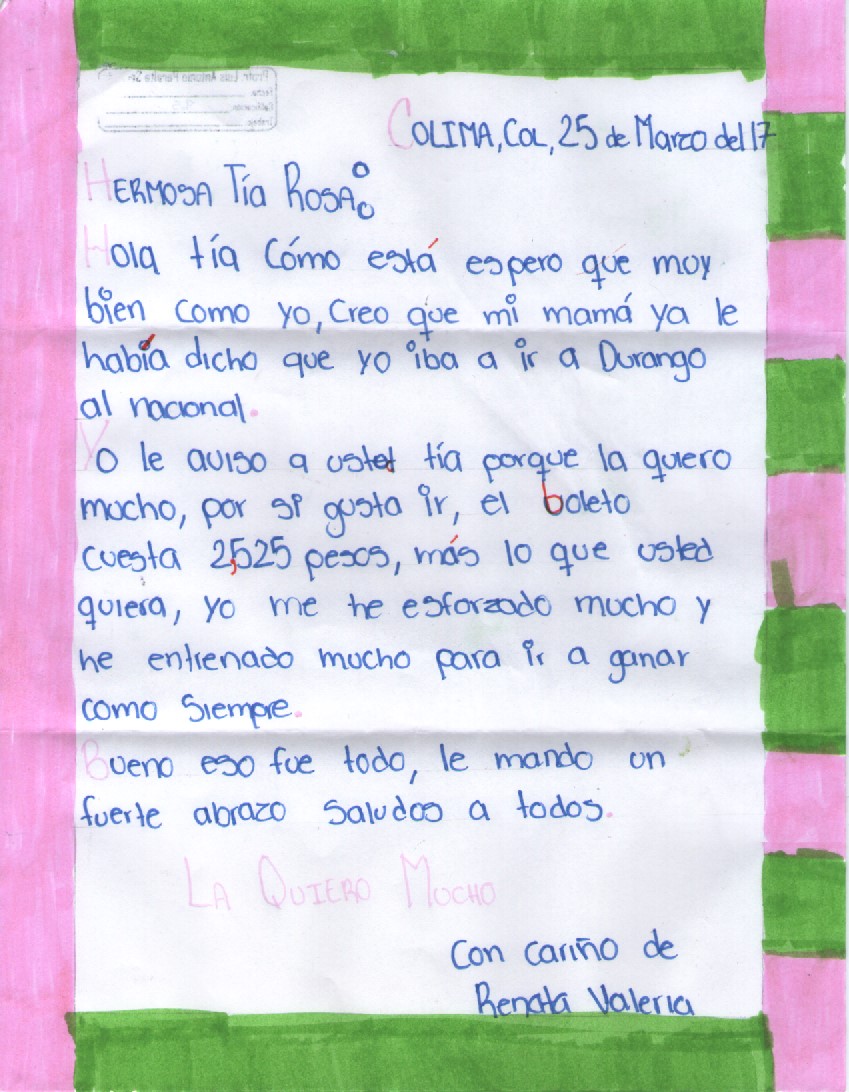 COLIMA, Col, 25 de Marzo del 17
HERMOSA Tía ROSA:
Hola tía Cómo está espero que muy
bien como yo, Creo que mi mamá ya le
había dicho que yo iba a ir a Durango
al nacional.
Yo le aviso a ustet tía porque la quiero
mucho, por si gusta ir, el boleto
cuesta 2,525 pesos, más lo que usted
quiera, yo me he esforzado mucho y
he entrenado mucho para ir a ganar
como siempre.
Bueno eso fue todo, le mando un
fuerte abrazo saludos a todos.
LA QUIERO MUCHO
Con cariño de
Renata Valeria